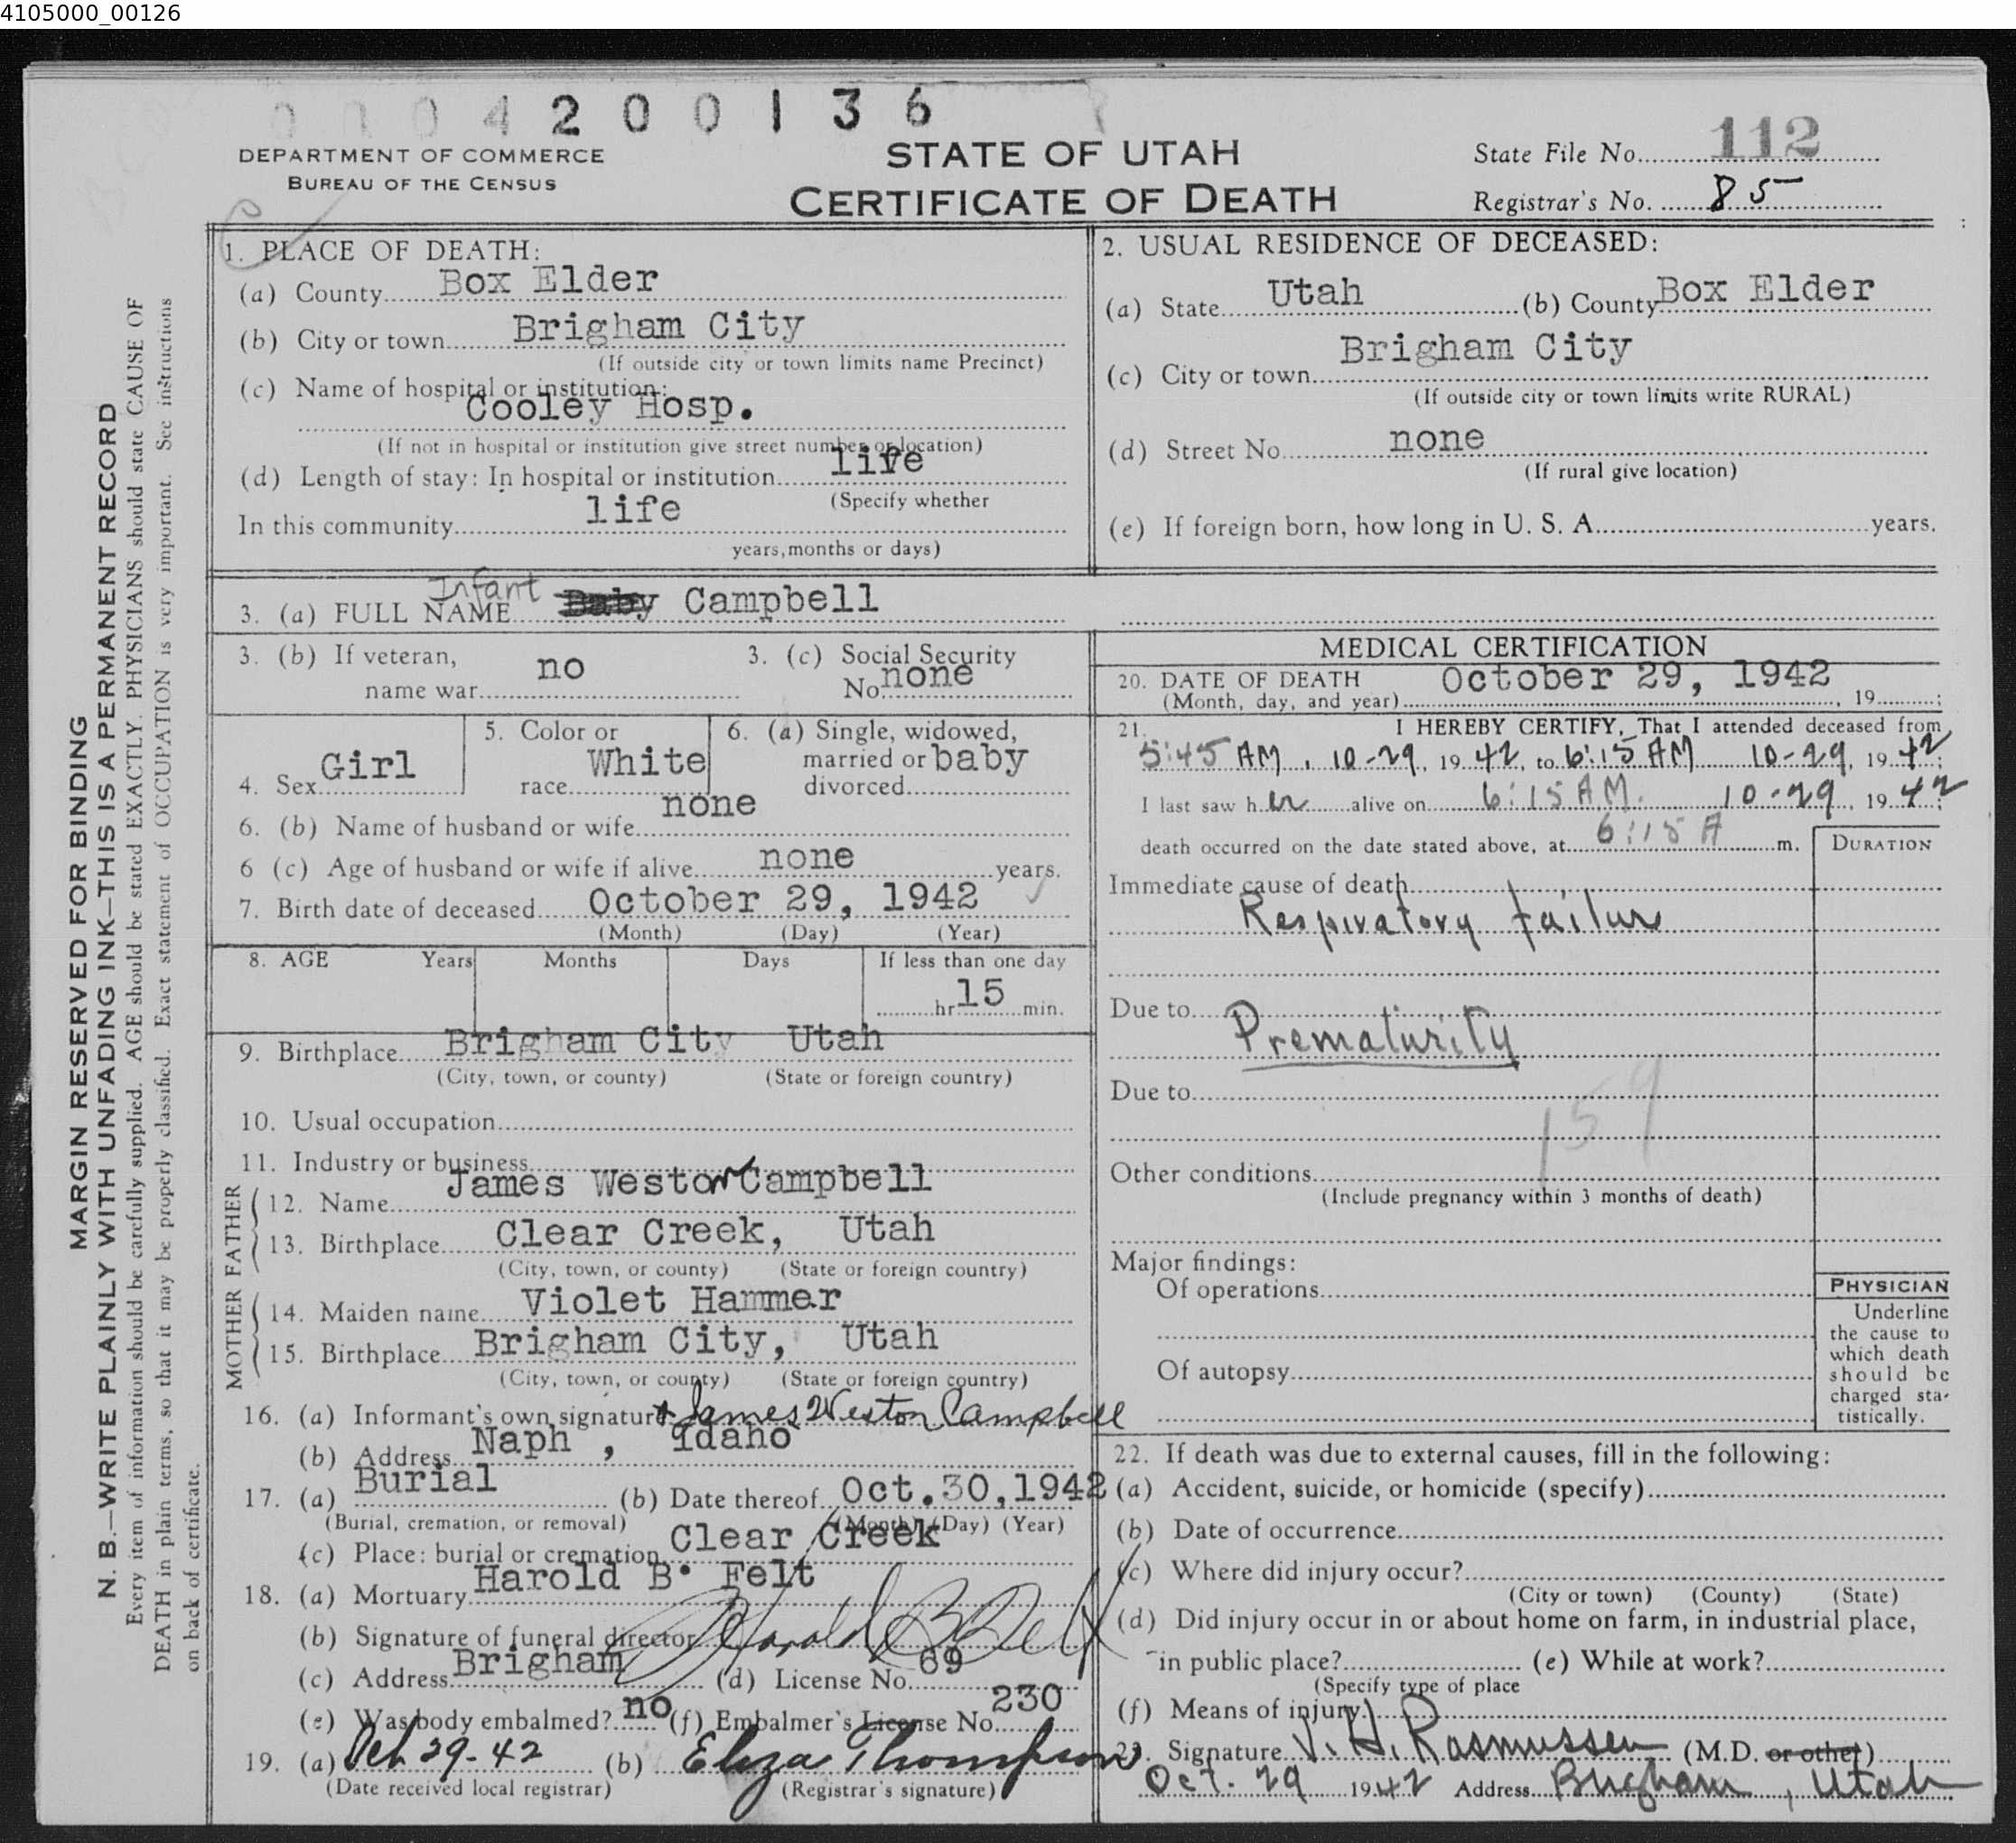 4105000_00126
0004200136
DEPARTMENT OF COMMERCE
BUREAU OF THE CENSUS
STATE OF UTAH
CERTIFICATE OF DEATH
State File No. 112
Registrar's No. 85
1. PLACE OF DEATH:
(a) County Box Elder
(b) City or town Brigham City
(If outside city or town limits name Precinct)
(c) Name of hospital or institution:
Cooley Hosp.
(If not in hospital or institution give street number or location)
(d) Length of stay: In hospital or institution life
(Specify whether
In this community life
years, months or days)
2. USUAL RESIDENCE OF DECEASED:
(a) State Utah (b) County Box Elder
(c) City or town Brigham City
(If outside city or town limits write RURAL)
(d) Street No. none
(If rural give location)
(e) If foreign born, how long in U. S. A. years.
3. (a) FULL NAME Infant Baby Campbell
3. (b) If veteran, name war no
3. (c) Social Security No. none
4. Sex Girl
5. Color or race White
6. (a) Single, widowed, married or divorced baby
6. (b) Name of husband or wife none
6 (c) Age of husband or wife if alive none years.
7. Birth date of deceased October 29, 1942
(Month) (Day) (Year)
8. AGE Years Months Days If less than one day
hr 15 min.
9. Birthplace Brigham City Utah
(City, town, or county) (State or foreign country)
10. Usual occupation
11. Industry or business
FATHER
12. Name James Weston Campbell
13. Birthplace Clear Creek, Utah
(City, town, or county) (State or foreign country)
MOTHER
14. Maiden name Violet Hammer
15. Birthplace Brigham City, Utah
(City, town, or county) (State or foreign country)
16. (a) Informant's own signature James Weston Campbell
(b) Address Naph , Idaho
17. (a) Burial (b) Date thereof Oct.30,1942
(Burial, cremation, or removal) (Month) (Day) (Year)
(c) Place: burial or cremation Clear Creek
18. (a) Mortuary Harold B. Felt
(b) Signature of funeral director Harold B Felt
(c) Address Brigham (d) License No. 69
(e) Was body embalmed? no (f) Embalmer's License No. 230
19. (a) Oct 29-42 (b) Eliza Thompson
(Date received local registrar) (Registrar's signature)
MEDICAL CERTIFICATION
20. DATE OF DEATH October 29, 1942
(Month, day, and year) , 19 ;
21. I HEREBY CERTIFY, That I attended deceased from
5:45 AM, 10-29, 1942, to 6:15 AM 10-29, 1942;
I last saw her alive on 6:15 AM. 10-29, 1942;
death occurred on the date stated above, at 6:15 A m.
DURATION
Immediate cause of death
Respiratory failure
Due to Prematurity
Due to
159
Other conditions
(Include pregnancy within 3 months of death)
Major findings:
Of operations
Of autopsy
PHYSICIAN
Underline
the cause to
which death
should be
charged sta-
tistically.
22. If death was due to external causes, fill in the following:
(a) Accident, suicide, or homicide (specify)
(b) Date of occurrence
(c) Where did injury occur?
(City or town) (County) (State)
(d) Did injury occur in or about home on farm, in industrial place,
in public place? (e) While at work?
(Specify type of place
(f) Means of injury.)
23. Signature V. H. Rasmussen (M.D. or other)
Oct. 29 1942 Address Brigham, Utah
MARGIN RESERVED FOR BINDING
N. B.—WRITE PLAINLY WITH UNFADING INK—THIS IS A PERMANENT RECORD
Every item of information should be carefully supplied. AGE should be stated EXACTLY. PHYSICIANS should state CAUSE OF
DEATH in plain terms, so that it may be properly classified. Exact statement of OCCUPATION is very important. See instructions
on back of certificate.